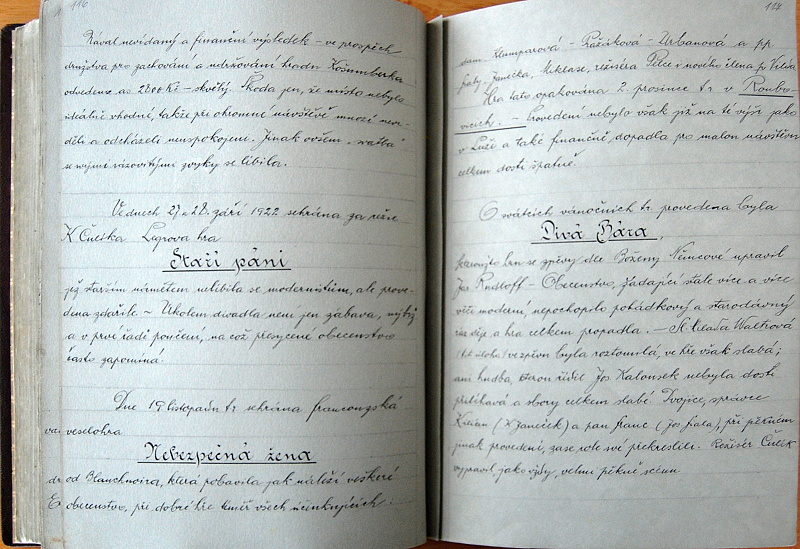 116
Nával nevídaný a finanční výsledek – ve prospěch
družstva pro zachování a udržování hradu Košumberka
odvedeno as 2800 Kč – skvělý. Škoda jen, že místo nebylo
ideálně vhodné, takže při ohromné návštěvě mnozí nevi-
děli a odcházeli neuspokojeni. Jinak ovšem „svatba“
se svými rázovitými zvyky se líbila.
Ve dnech 27. a 28. září 1922 sehrána za režie
K Čulíka Legrova hra
Staří páni
jež starším námětem nelíbila se modernistům, ale prove-
dena zdařile – Úkolem divadla není jen zábava, nýbrž
a v prvé řadě poučení, na což přesycené obecenstvo
často zapomíná.
Dne 19 listopadu t.r. sehrána francouzská
veselohra
Nebezpečná žena
od Blanchnoira, která pobavila jak náleží veškeré
obecenstvo, při dobré hře téměř všech účinkujících.
114
dam. Klumparová – Ražáková – Urbanová a pp
Fialy, Janečka, Miklase, režiséra Pilce i nového člena p.
Hra tato opakována 2. prosince t.r. v Roubo-
vicích. – Provedení nebylo však již na té výši jako
v Luži a také finančně dopadla pro malou návštěvu
celkem dosti špatně.
O svátcích vánočních t.r. provedena byla
Divá Bára,
kteroužto hru se zpěvy dle Boženy Němcové upravil
Jos Rudloff – Obecenstvo, žádající stále více a více
věci moderní, nepochopilo pohádkový a starodávný
ráz děje a hra celkem propadla. – Sl. Vlasta Waltrová
(tit. úloha) ve zpěvu byla roztomilá, ve hře však slabá;
ani hudba, kterou řídil Jos Kalousek nebyla dosti
průtahová a sbory celkem slabé. Dvojice, správce
Kilian (K Janeček) a pan Franc (Jos Fiala), při pěkném
jinak provedení, zase role své překreslili. Režisér Čulík
vypravil jako vždy, velmi pěkně scénu